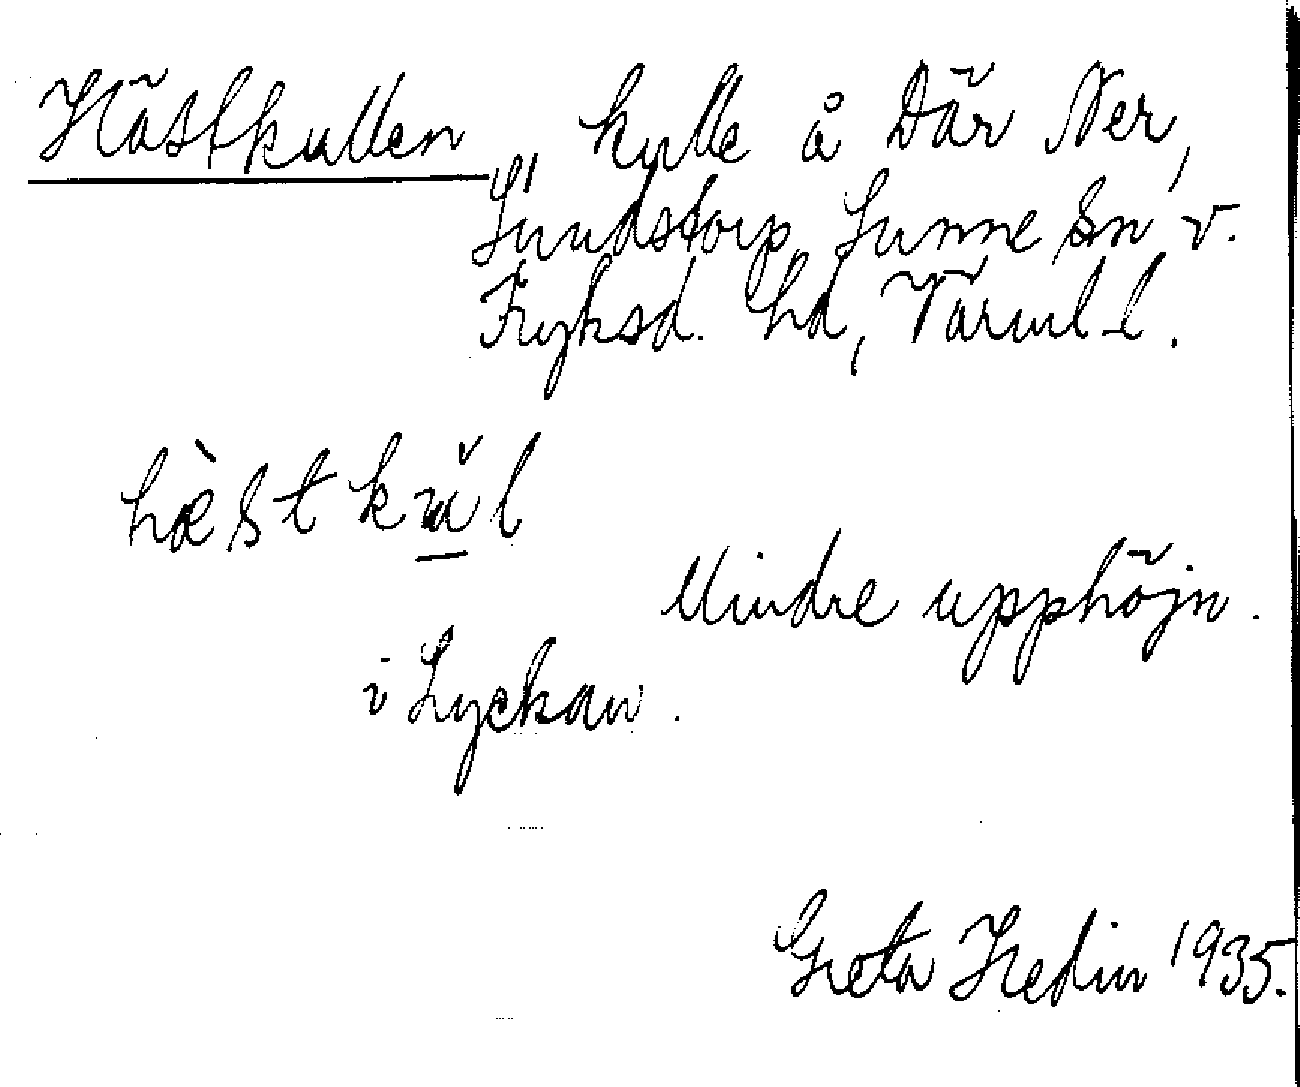 Hästkullen, kulle å Där Ner,
Sundstorp, Sunne Sn v.
Fryksd. hd, Värml. l.
hæ̀stkŭl
Mindre upphöjn.
i Lyckan.
Greta Hedin 1935.